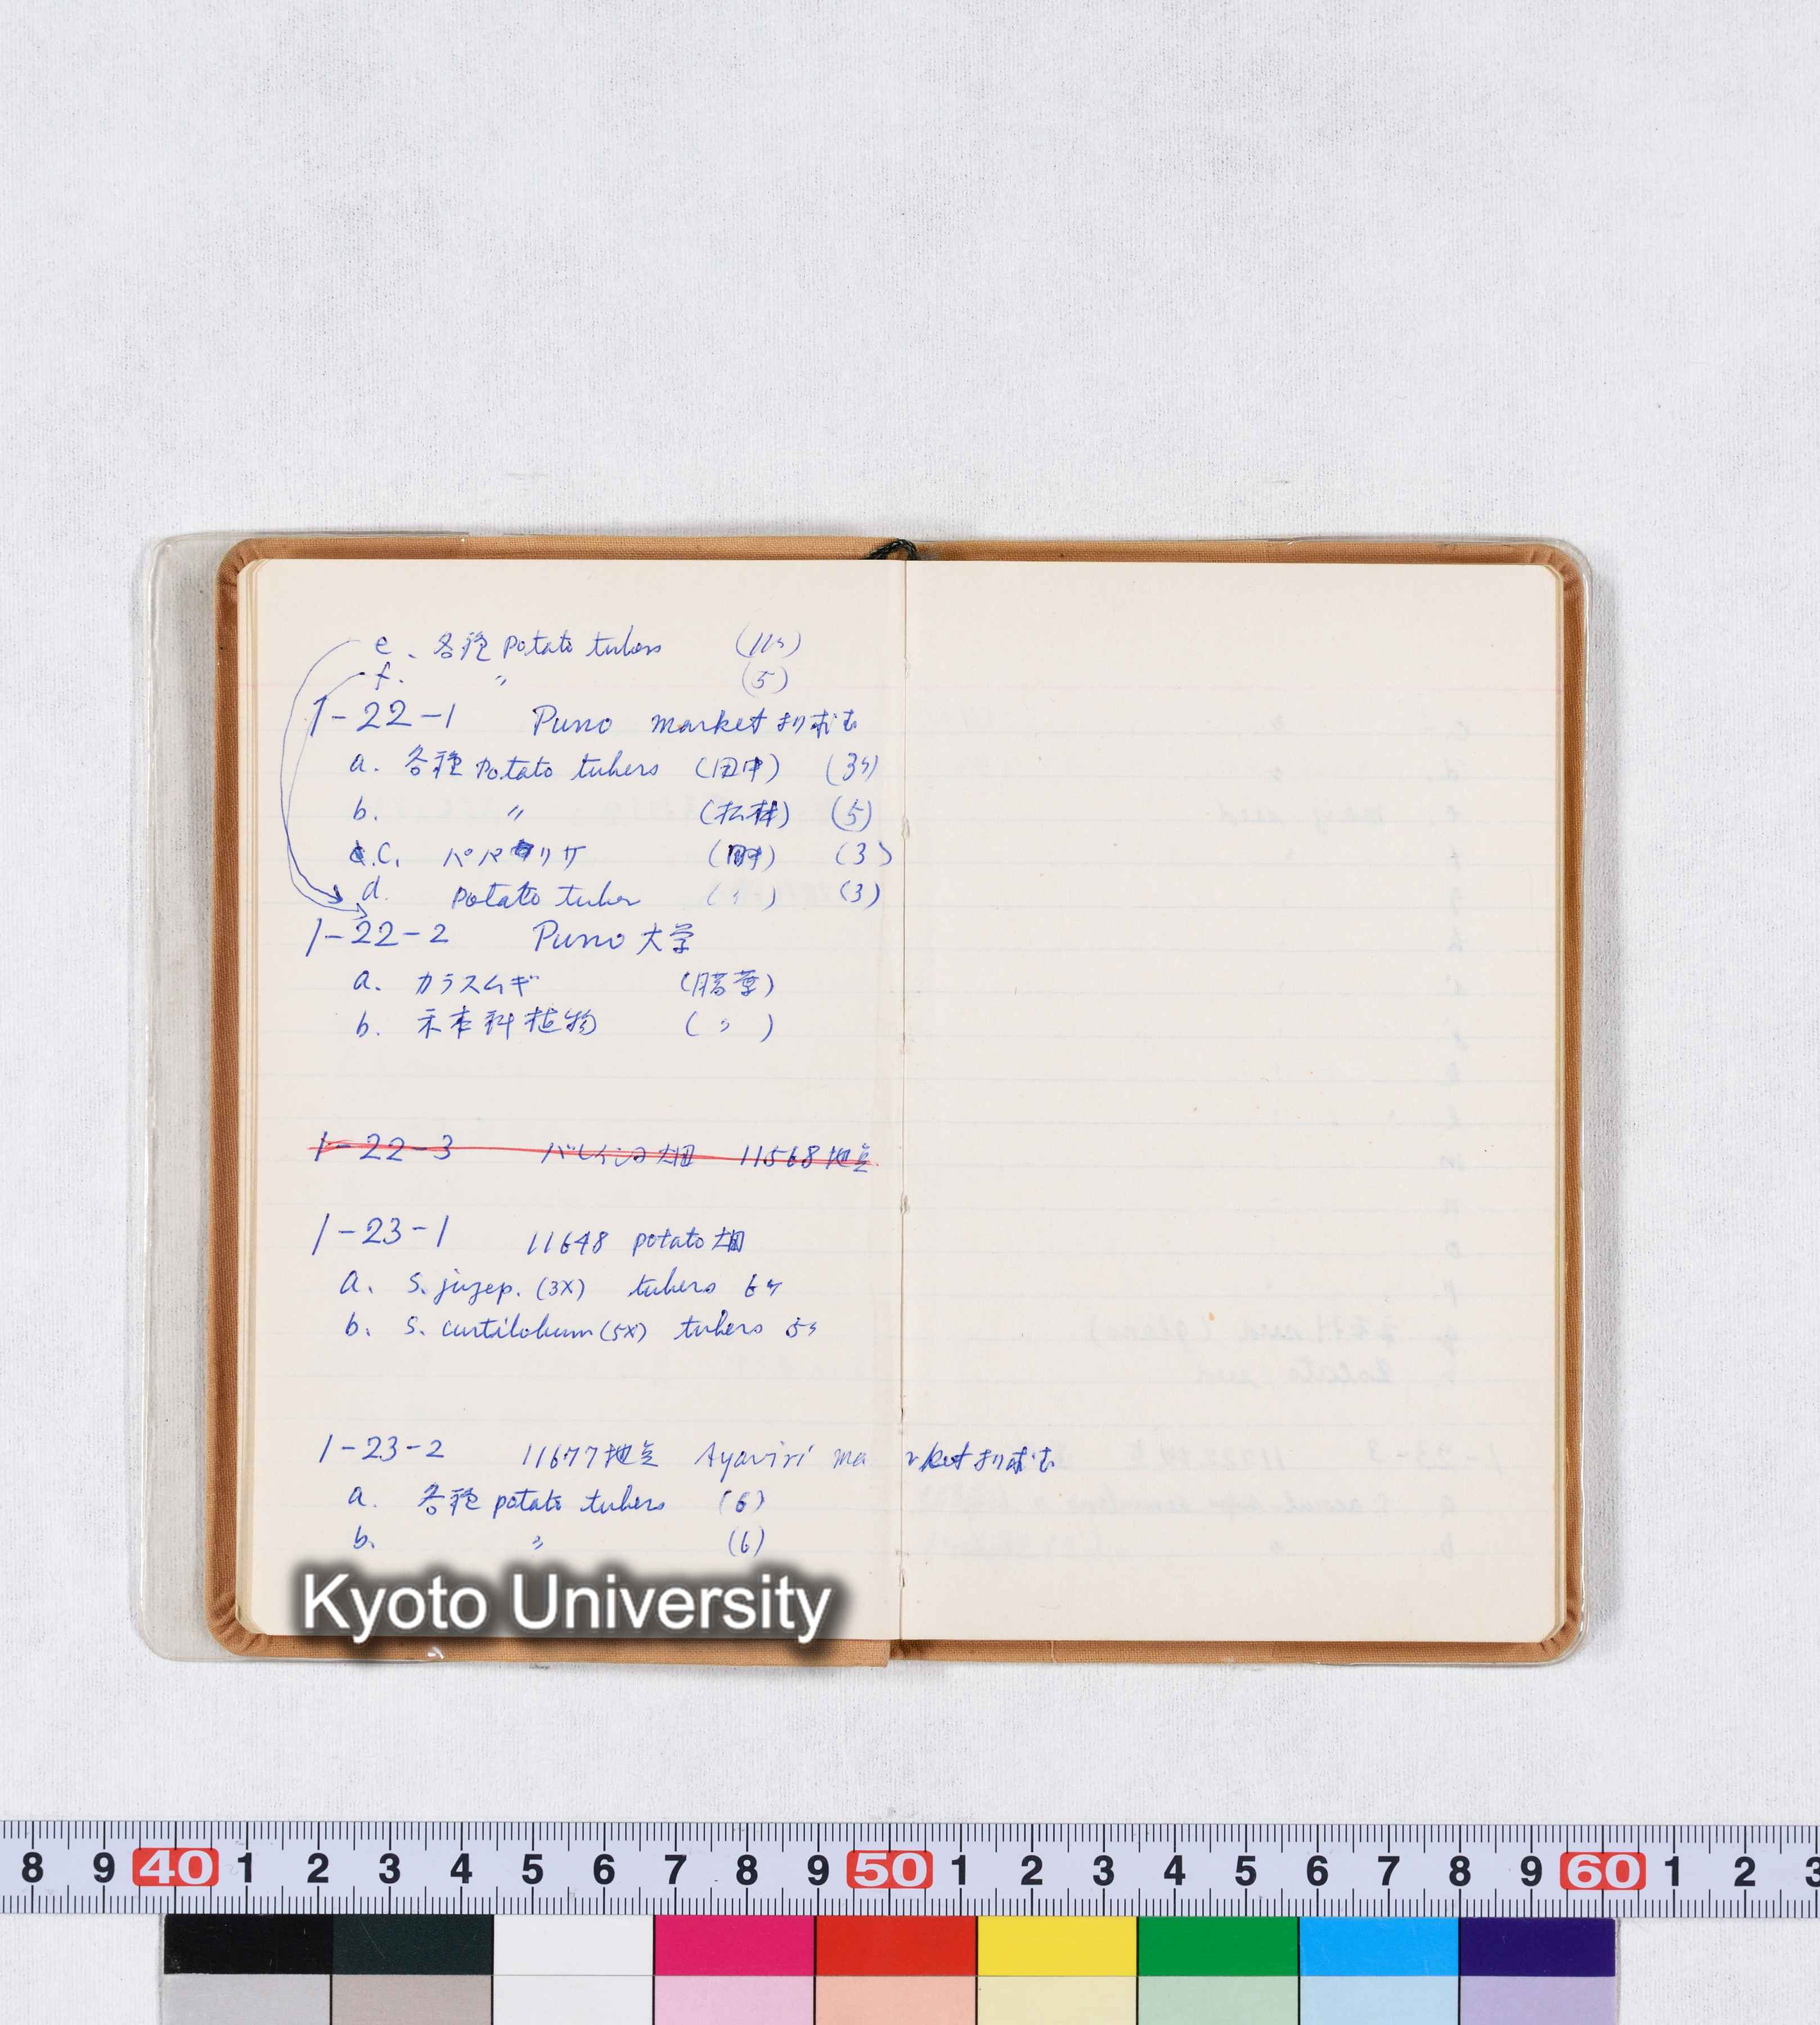 e. 各種 potato tubers (11ケ)
f. 〃 (5)
1-22-1 Puno market より求む
a. 各種 potato tubers (田中) (3ケ)
b. 〃 (松林) (5)
c. パパリサ (田中) (3)
d. potato tuber (〃) (3)
1-22-2 Puno 大学
a. カラスムギ (腊葉)
b. 禾本科植物 (〃)
1-22-3 バレイショ畑 11568地点
1-23-1 11648 potato 畑
a. S. juzep. (3X) tubers 6ケ
b. S. curtilobum (5X) tubers 5ケ
1-23-2 11677地点 Ayaviri market より求む
a. 各種 potato tubers (6)
b. 〃 (6)
Kyoto University
8 9 40 1 2 3 4 5 6 7 8 9 50 1 2 3 4 5 6 7 8 9 60 1 2 3